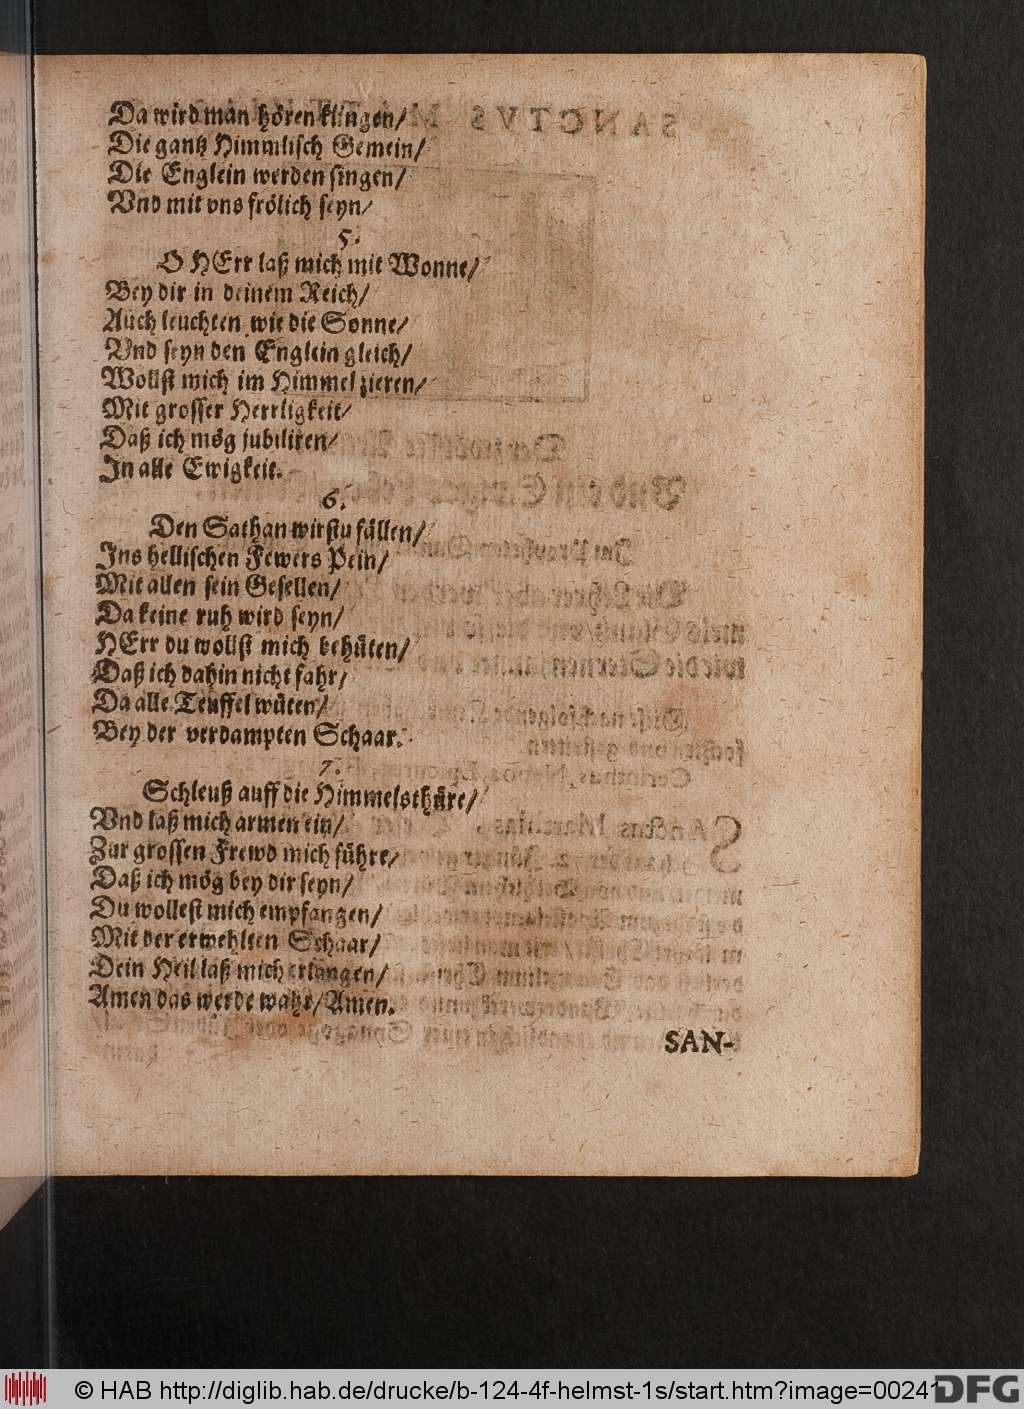 Da wird man hören klingen/
Die gantz Himmlisch Gemein/
Die Englein werden singen/
Vnd mit vns frölich seyn/
5.
O HErr laß mich mit Wonne/
Bey dir in deinem Reich/
Auch leuchten wie die Sonne/
Vnd seyn den Englein gleich/
Wollst mich im Himmel zieren/
Mit grosser Herrligkeit/
Daß ich mög jubiliren/
In alle Ewigkeit.
6.
Den Sathan wirstu fällen/
Ins hellischen Fewers Pein/
Mit allen sein Gesellen/
Da keine ruh wird seyn/
HErr du wollst mich behüten/
Daß ich dahin nicht fahr/
Da alle Teuffel wüten/
Bey der verdampten Schaar.
7.
Schleuß auff die Himmelsthüre/
Vnd laß mich armen ein/
Zur grossen Frewd mich führe/
Daß ich mög bey dir seyn/
Du wollest mich empfangen/
Mit der erwehlten Schaar/
Dein Heil laß mich erlangen/
Amen das werde wahr/Amen.
SAN-
© HAB http://diglib.hab.de/drucke/b-124-4f-helmst-1s/start.htm?image=00241
DFG